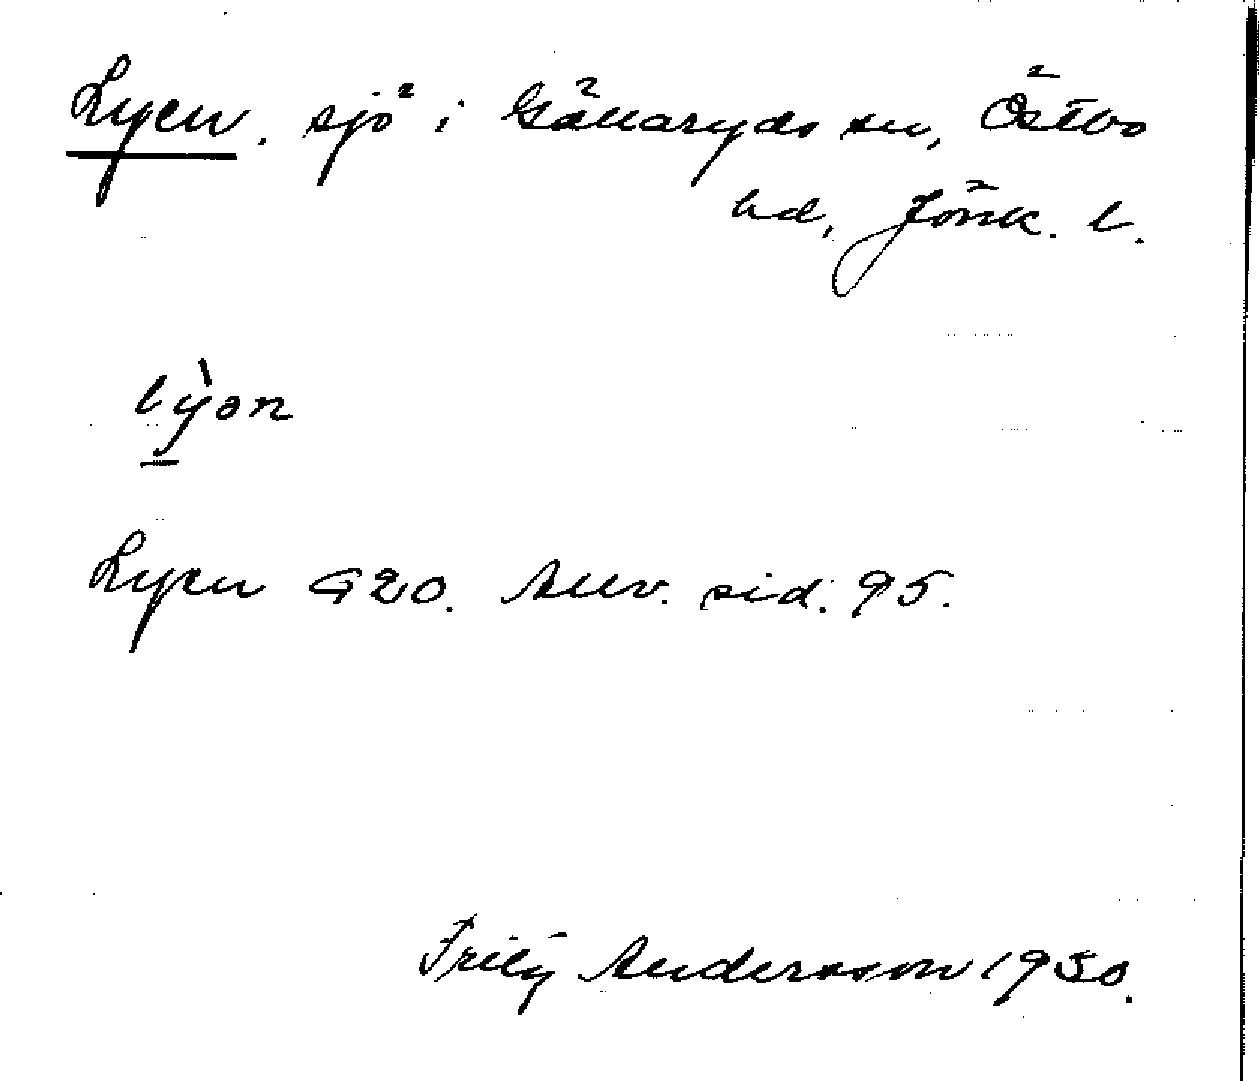 Lyen. sjö i Gällaryds sn, Östbo
hd, Jönk. l.
lỳon
Lyen G20. Anv. sid. 95.
Fritz Andersson 1930.